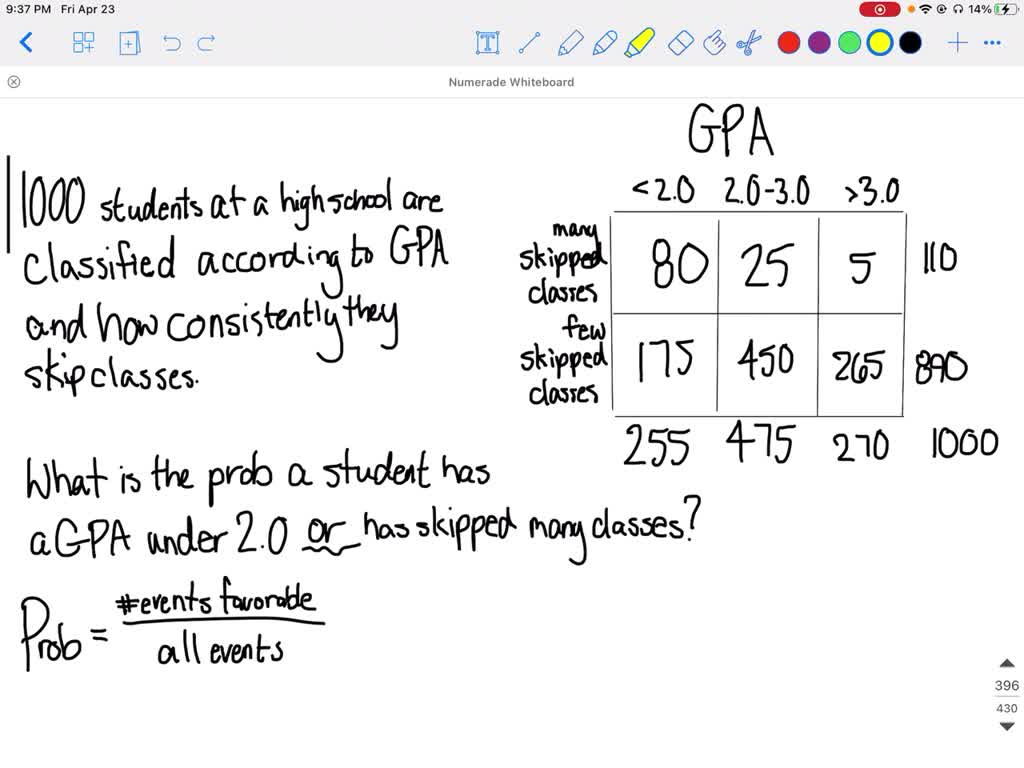 9:37 PM Fri Apr 23
14%
Numerade Whiteboard
GPA
<2.0 2.0-3.0 >3.0
many
skipped
classes
80 25 5 110
few
skipped
classes
175 450 265 890
255 475 270 1000
1000 students at a high school are
classified according to GPA
and how consistently they
skip classes.
What is the prob a student has
a GPA under 2.0 or has skipped many classes?
Prob = #events favorable
all events
396
430